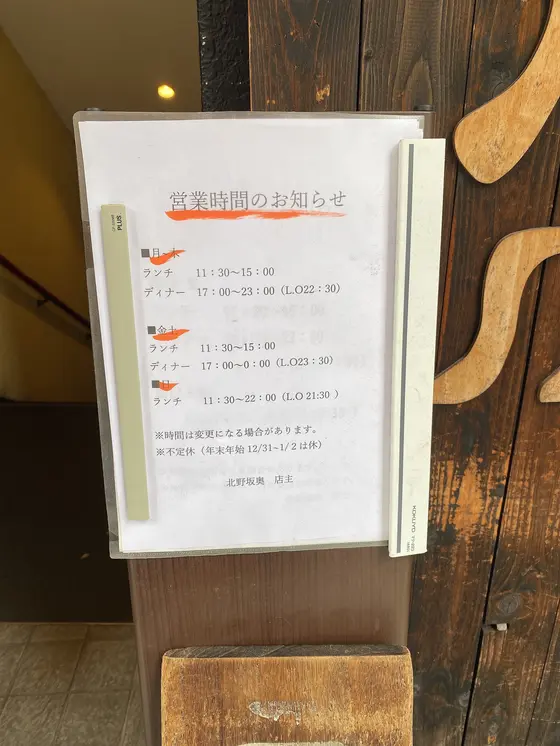 営業時間のお知らせ
■月-木
ランチ 11:30〜15:00
ディナー 17:00〜23:00(L.O22:30)
■金土
ランチ 11:30〜15:00
ディナー 17:00〜0:00(L.O23:30)
■日
ランチ 11:30〜22:00(L.O 21:30 )
※時間は変更になる場合があります。
※不定休(年末年始 12/31~1/2は休)
北野坂奥 店主
PLUS
KOKUYO